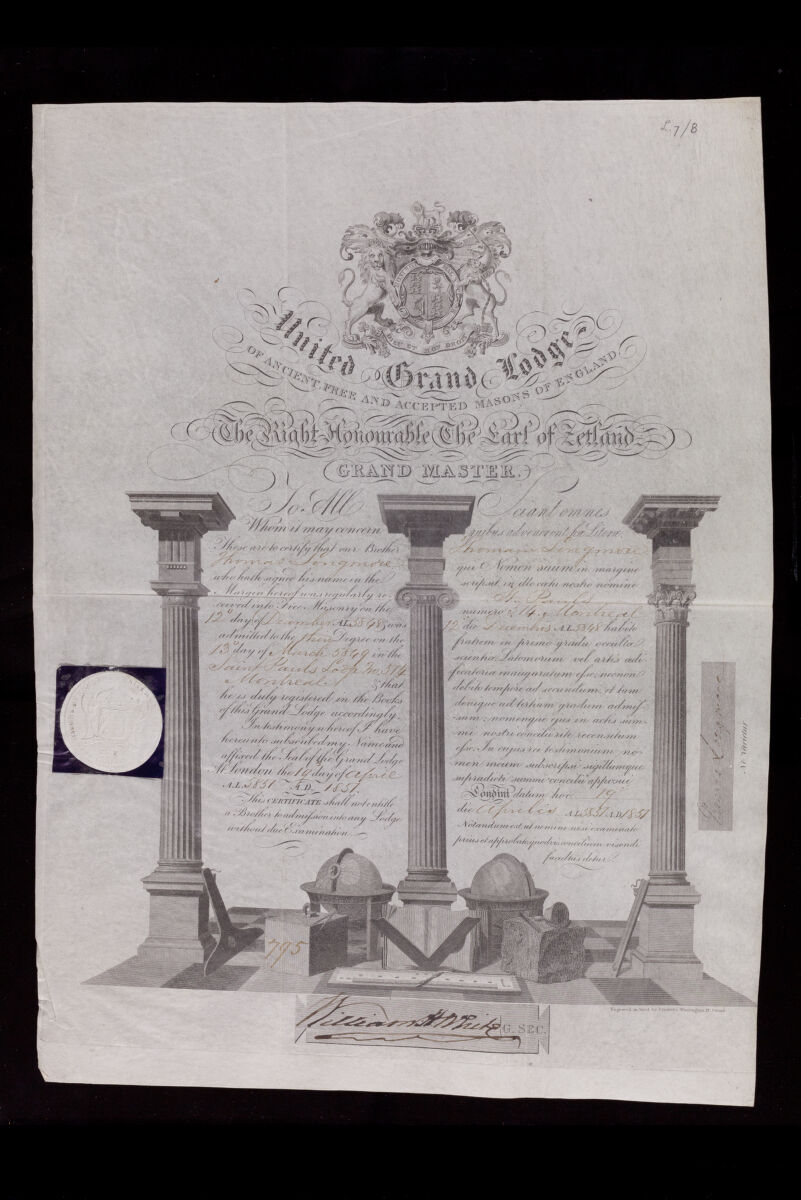 L.7/8
DIEU ET MON DROIT
United Grand Lodge
OF ANCIENT FREE AND ACCEPTED MASONS OF ENGLAND
The Right Honourable The Earl of Zetland
GRAND MASTER.
To All
Whom it may concern
These are to certify that our Brother
Thomas Longmore
who hath signed his name in the
Margin hereof was regularly re-
ceived into Free Masonry on the
12th day of December A.L. 5848, was
admitted to the third Degree on the
13th day of March 5849 in the
Saint Pauls Lodge No. 514
Montreal & that
he is duly registered in the Books
of this Grand Lodge accordingly.
In testimony whereof I have
hereunto subscribed my Name and
affixed the Seal of the Grand Lodge
At London the 19 day of April
A.L. 5851 A.D. 1851.
This CERTIFICATE shall not entitle
a Brother to admission into any Lodge
without due Examination.
Sciant omnes
quibus advenerent hæ Literæ
Thomam Longmore
qui Nomen suum in margine
scripsit, in die cœtu nostro nomine
St. Pauls
numero 514 Montreal
12 die Decembris A.L. 5848 habito
fratrem in primo gradu occultæ
scientiæ Latomorum vel artis ædi-
ficatoriæ inauguratum esse; necnon
debito tempore ad secundum, et tum
denique ad tertium gradum admis-
sum; nomenque ejus in actis sum-
mi nostri concilii rite recensitum
esse. In cujus rei testimonium no-
men meum subscripsi sigillumque
supradicti summi concilii apposui
Londini datum hoc 19
die Aprilis A.L. 5851 A.D. 1851
Notandum est, ut nemini nisi examinato
prius et approbato, quodvis concilium visendi
facultas detur.
NE VARIETUR
795
William H White G. SEC.